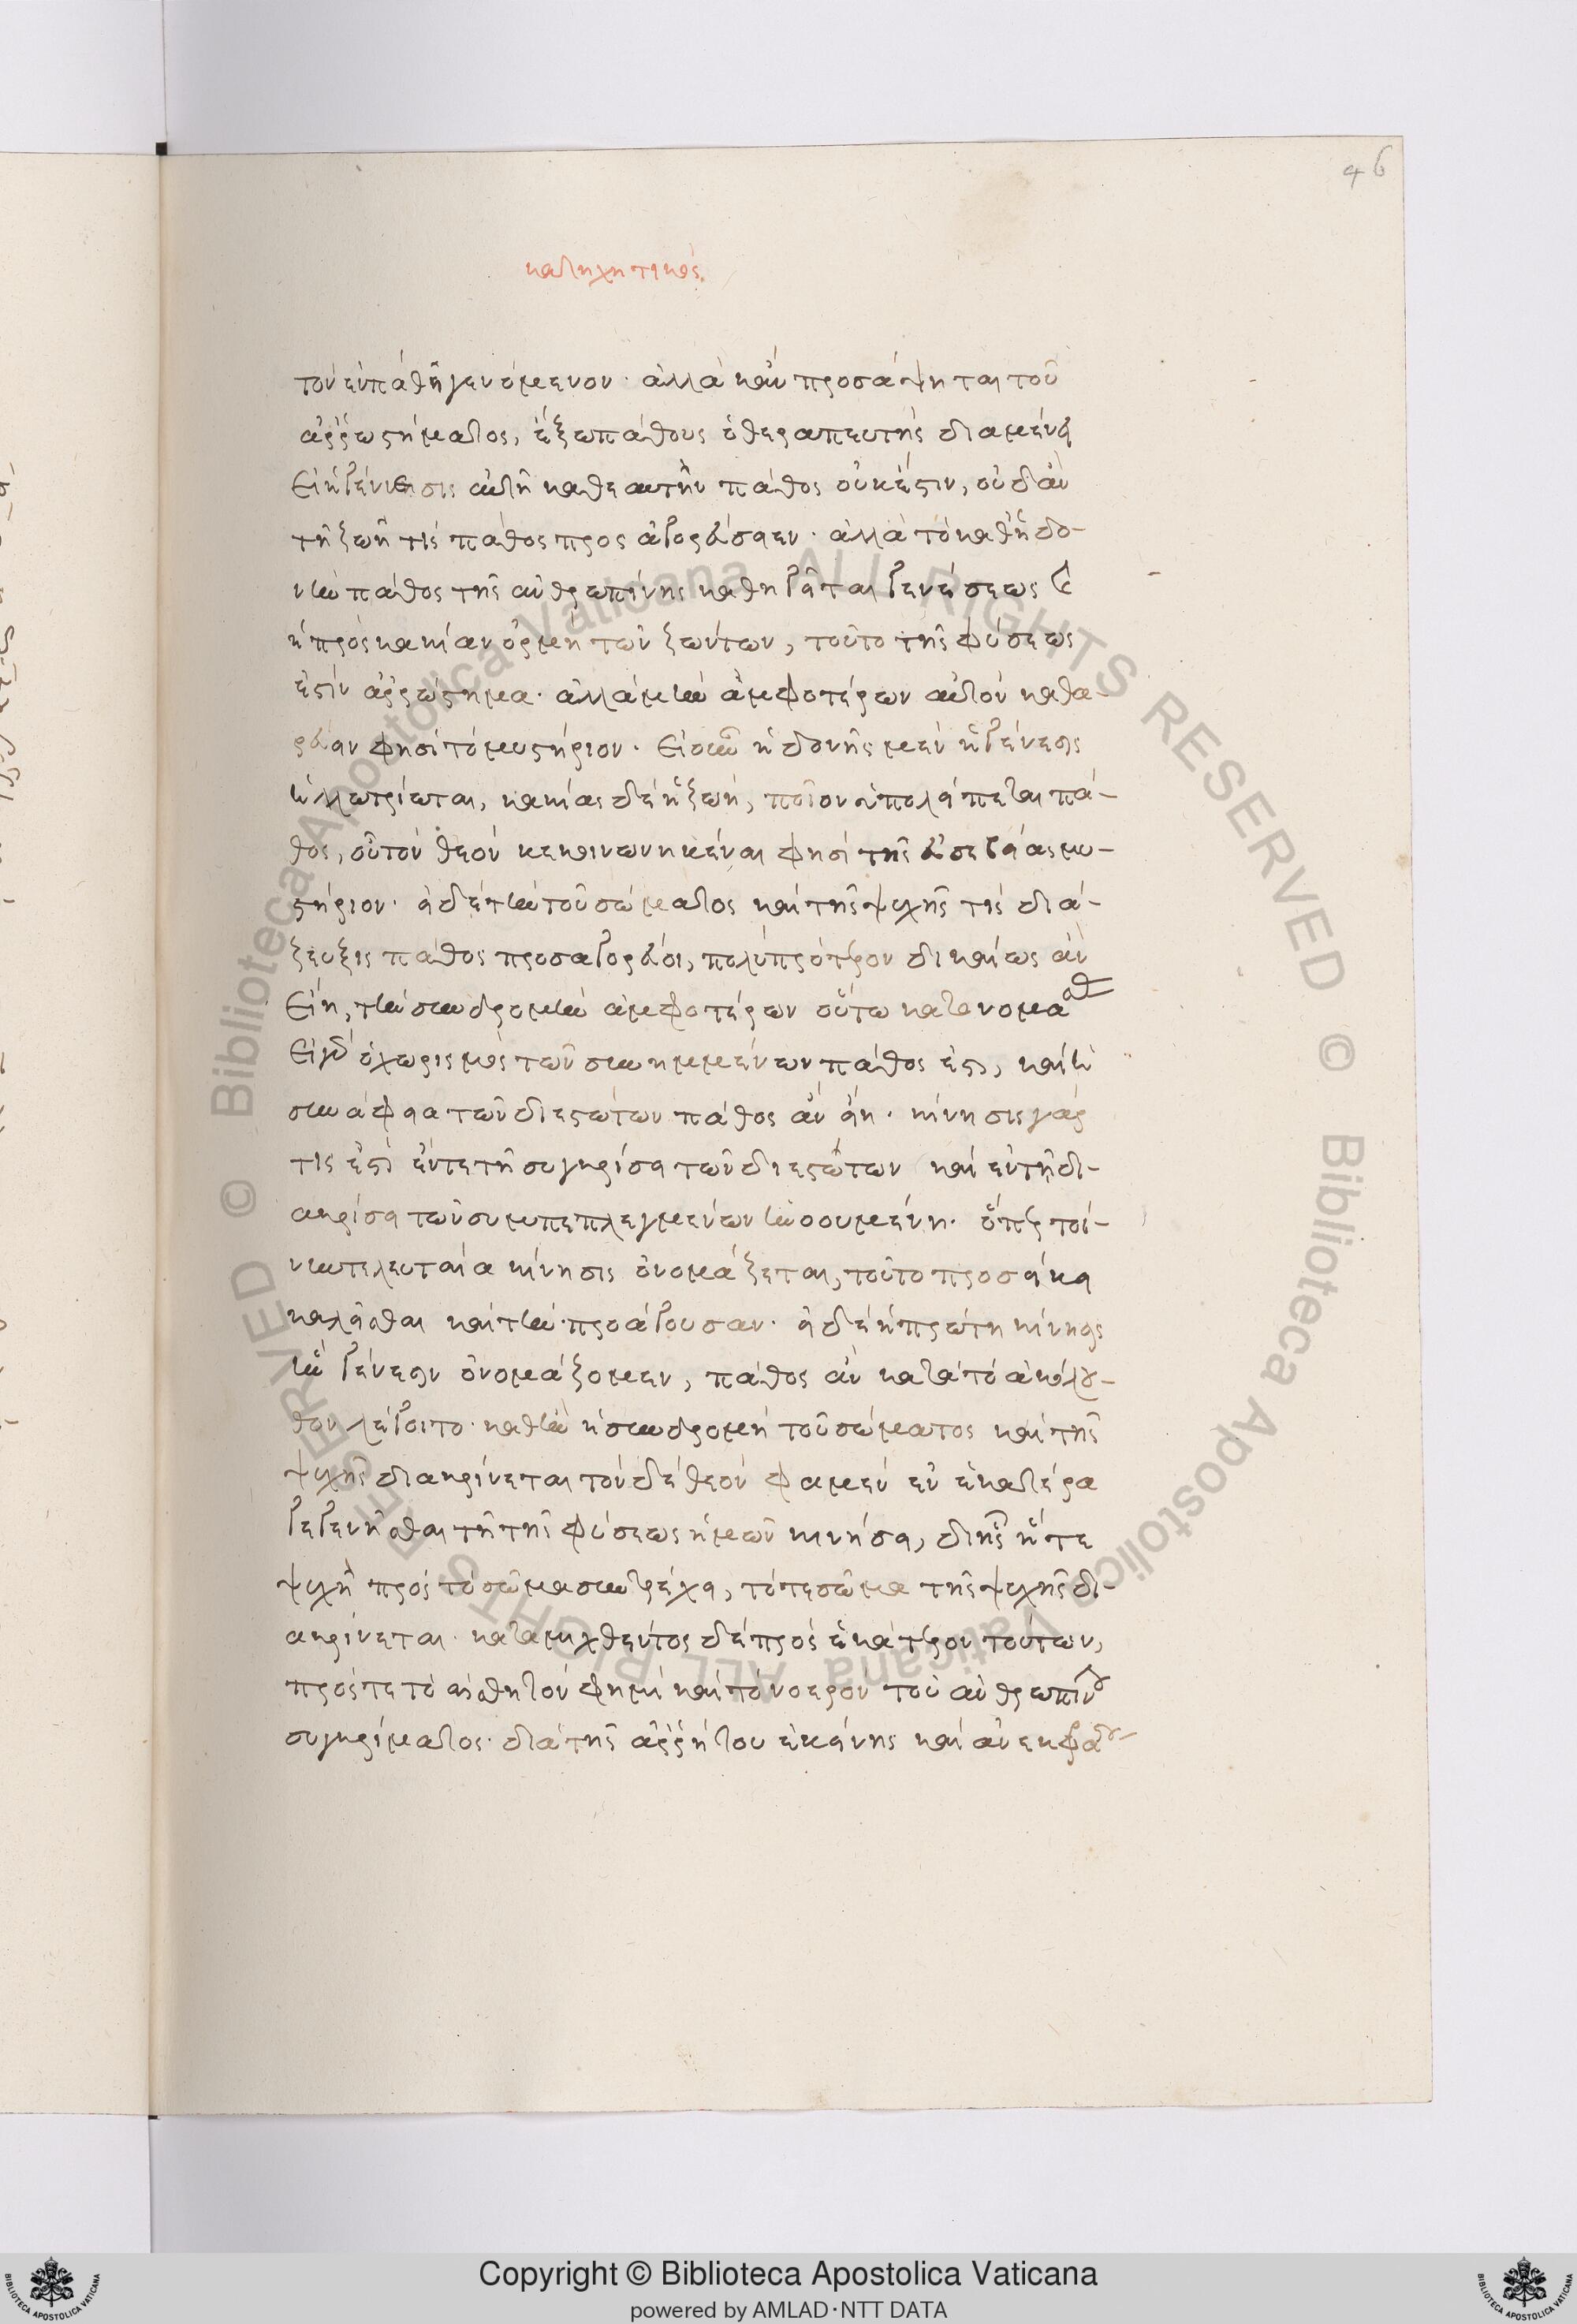 46
κατηχητικός.
τὸν ἐν πάθη γενόμενον· ἀλλὰ κἂν προσάψηται τοῦ
ἀῤῥωστήματος, ἔξω πάθους ὁ θεραπευτὴς διαμένει
Εἰ ἡ γέννησις αὐτὴ καθεαυτὴν πάθος οὐκ ἔστιν, οὐδ' ἂν
τὴ ζωή τις πάθος προσαγορεύσειεν· ἀλλὰ τὸ καθ' ἡδο-
νὴν πάθος τῆς ἀνθρωπίνης καθηγεῖται γενέσεως καὶ
ἡ πρὸς κακίαν ὁρμὴ τῶν ζώντων, τοῦτο τῆς φύσεως
ἐστὶν ἀῤῥώστημα· ἀλλὰ μὴν ἀμφοτέρων αὐτὸν καθα-
ρεύειν φησὶ τὸ μυστήριον· Εἰ οὖν ἡδονῆς μὲν ἡ γένεσις
ἠλλωτρίωται, κακίας δὲ ἡ ζωή, ποῖον ὑπολείπεται πά-
θος, οὗ τὸν θεὸν κεκοινωνηκέναι φησὶ τῆς εὐσεβείας μυ-
στήριον· εἰ δὲ τὴν τοῦ σώματος καὶ τῆς ψυχῆς τις διά-
ζευξις πάθος προσαγορεύοι, πολὺ πρότερον δικαίως ἂν
Εἴη, τὴν συνδρομὴν ἀμφοτέρων οὕτω κατονομάσαι
Εἰ γὰρ ὁ χωρισμὸς τῶν συνημμένων πάθος ἐστὶ, καὶ ἡ
συνάφεια τῶν διεστώτων πάθος ἂν εἴη· κίνησις γάρ
τις ἐστὶ ἔν τε τῆ συγκρίσει τῶν διεστώτων καὶ ἐν τῆ δι-
ακρίσει τῶν συμπεπλεγμένων ἡνουμένη· ὅπερ τοί-
νυν τελευταία κίνησις ὀνομάζεται, τοῦτο προσήκει
καλεῖσθαι καὶ τὴν προάγουσαν· εἰ δὲ ἡ πρώτη κίνησις
ἣν γένεσιν ὀνομάζομεν, πάθος ἂν κατὰ τὸ ἀκόλου-
θον λέγοιτο· καθ' ἣν ἡ συνδρομὴ τοῦ σώματος καὶ τῆς
ψυχῆς διακρίνεται τὸν δὲ θεόν φαμεν ἐν ἑκατέρα
γεγενῆσθαι τῆ τῆς φύσεως ἡμῶν κινήσει, δι' ἧς ἥ τε
ψυχὴ πρὸς τὸ σῶμα συντρέχει, τό τε σῶμα τῆς ψυχῆς δι-
ακρίνεται· καταμιχθέντος δὲ πρὸς ἑκάτερον τούτων,
πρός τε τὸ αἰσθητόν φημι καὶ τὸ νοερὸν τοῦ ἀνθρωπίνου
συγκρίματος· διὰ τῆς ἀῤῥήτου ἐκείνης καὶ ἀνεκφά-
Copyright © Biblioteca Apostolica Vaticana
powered by AMLAD·NTT DATA